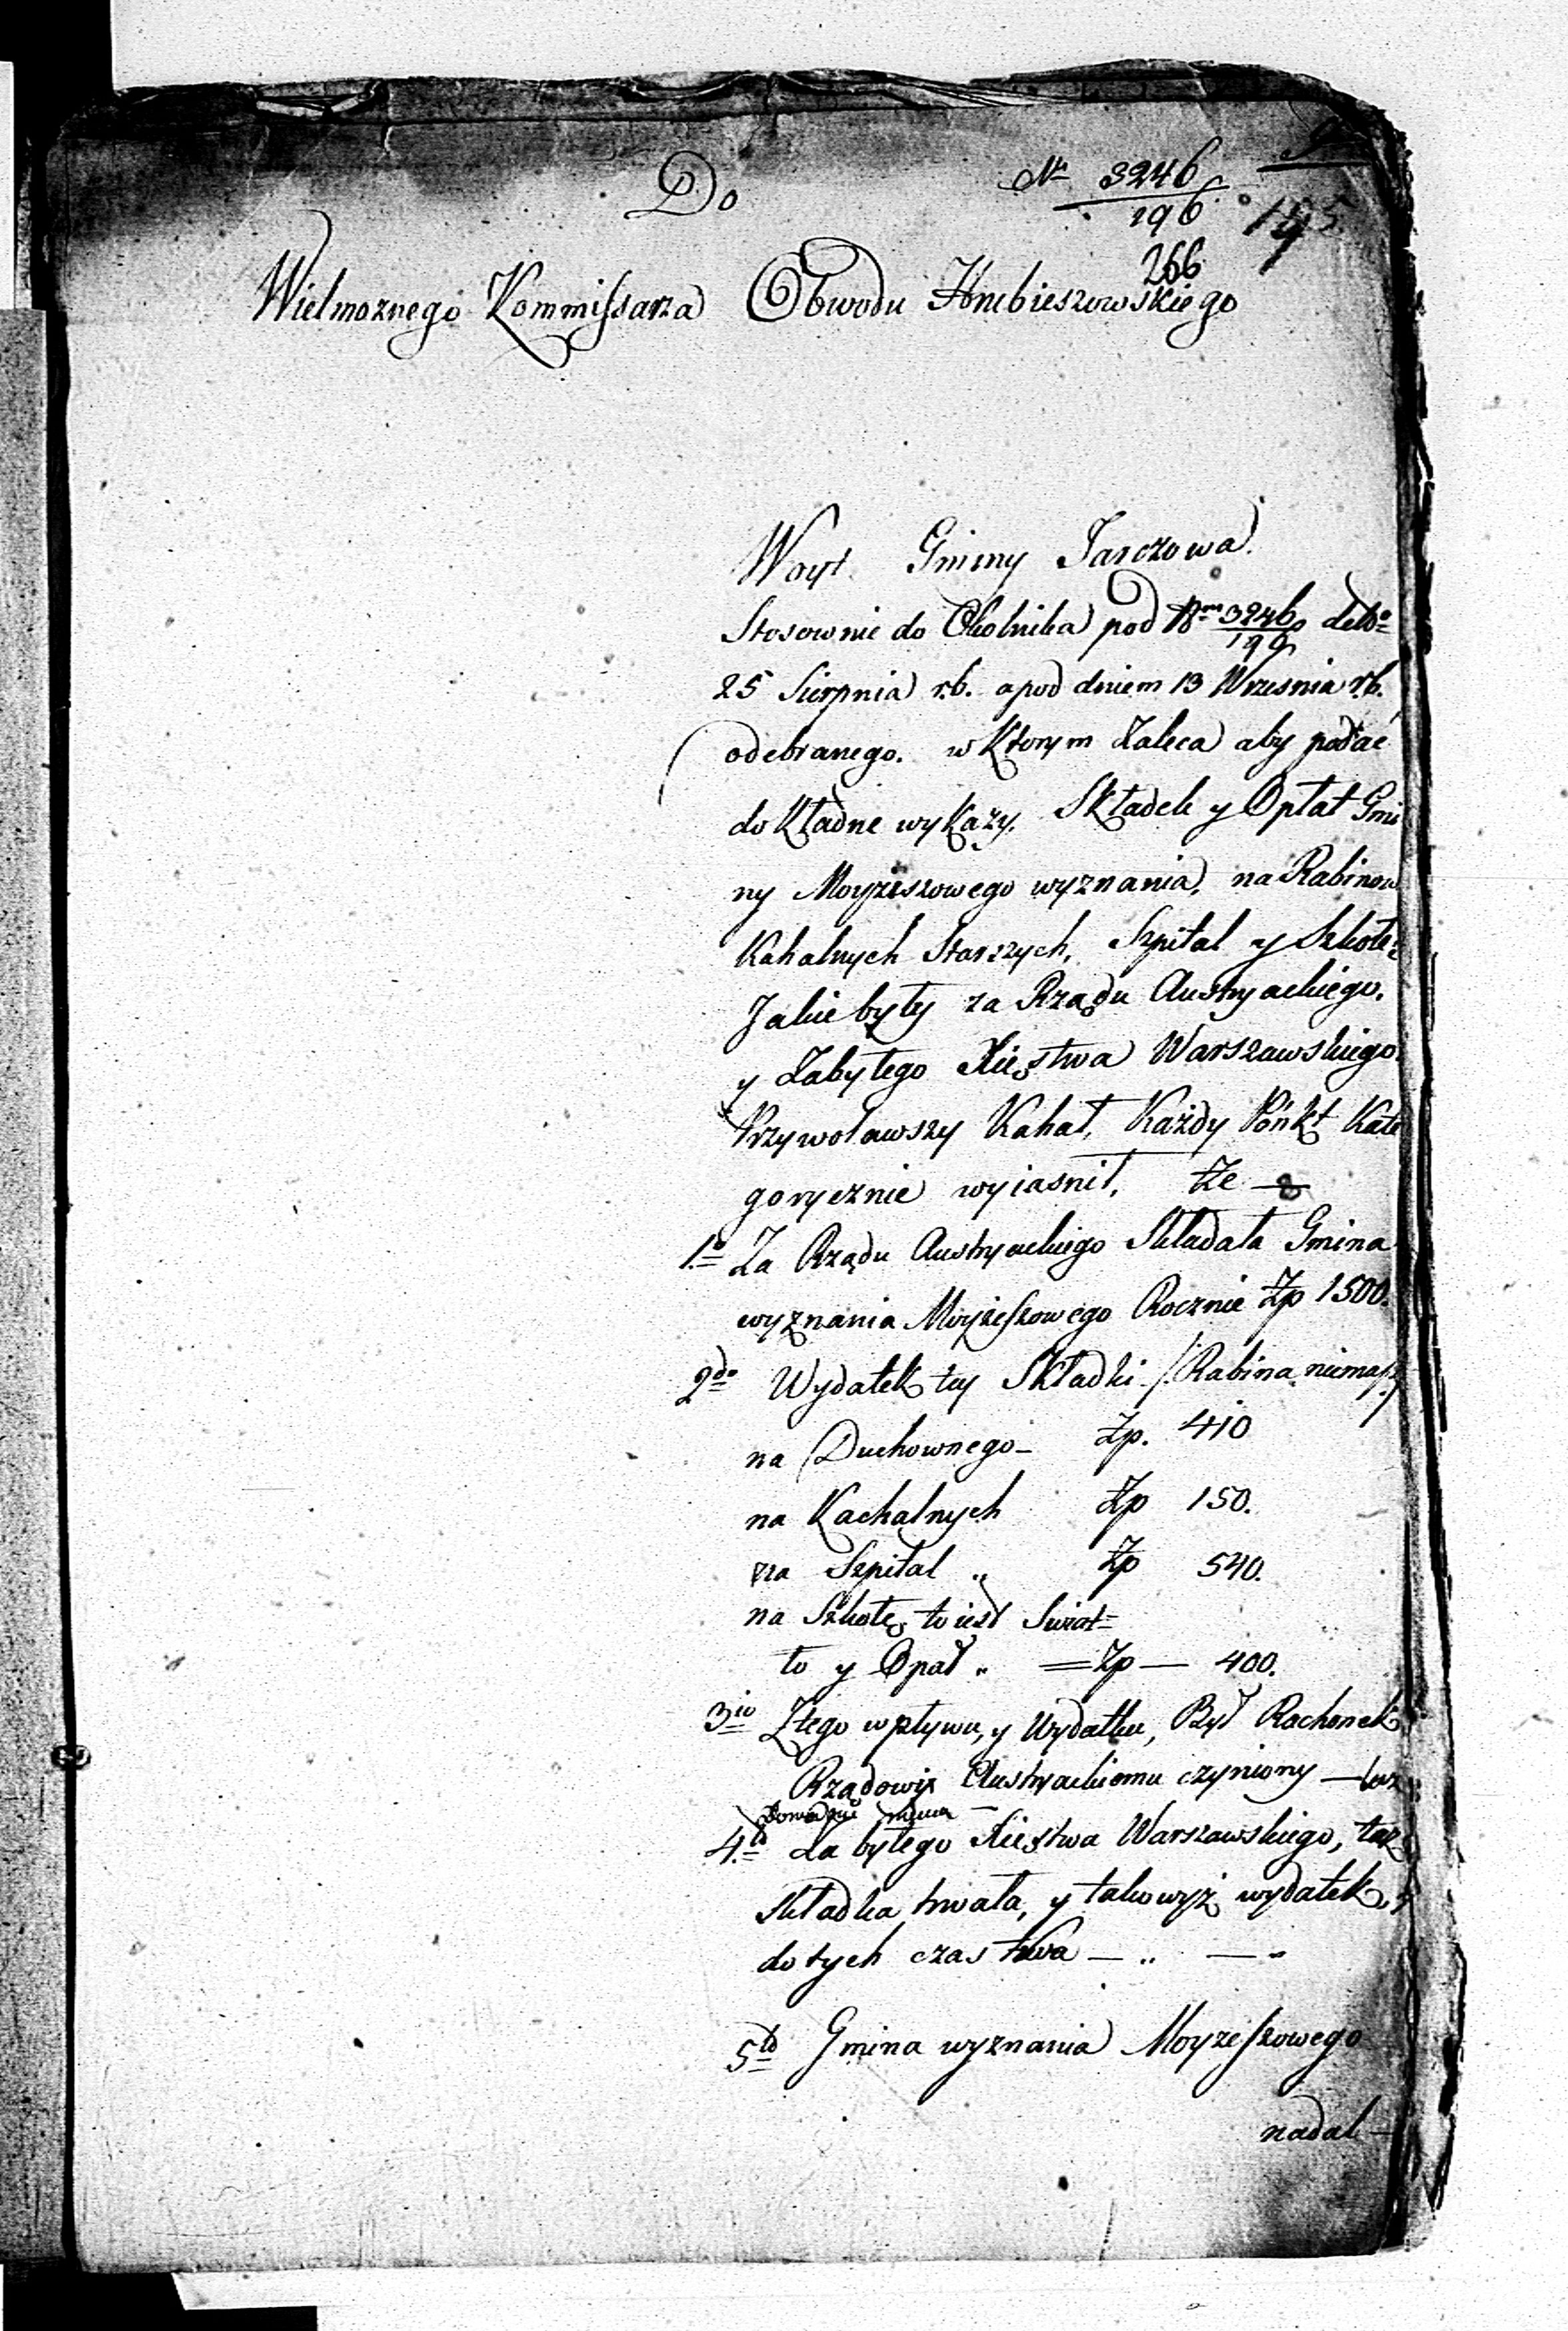 Do
Nr 3246
196
145
266
Wielmoznego Kommissarza Obwodu Hrubieszowskiego
Woyt Gminy Jarczowa.
Stosownie do Okolnika pod Nrem 3246 detto
196
25 Sierpnia r.b. a pod dniem 13 Wrzesnia r.b.
odebranego. w Ktorym Zaleca aby podać
do Kładne wyKazy. Składek y Opłat Gmi
ny Moyzeszowego wyznania, na Rabinow
Kahalnych Starszych, Szpital y Szkołe:
Jakie były za Rządu Austryackiego.
y Zabyłego Xięstwa Warszawskiego.
Przywoławszy Kahał, Każdy Pónkt Kate
gorycznie wyiasnił, że
1o Za Rządu Austryackiego Składała Gmina
wyznania Moyżeszowego Rocznie Zp 1500.
2do Wydatek tey Składki /: Rabina niemasz
na Duchownego Zp. 410
na Kachalnych Zp 150.
na Szpital „ Zp 540.
na Szkołę to iest Swiat=
ło y Opał „ = Zp — 400.
3io Ztego wpływu, y Wydatku, Był Rachonek
Rządowi Austryackiemu czyniony —
4to Za byłego Xięstwa Warszawskiego, taż
składka trwała, y takowyż wydatek, y
dotych czas trwa — „ —
5to Gmina wyznania Moyzeszowego
nadal —